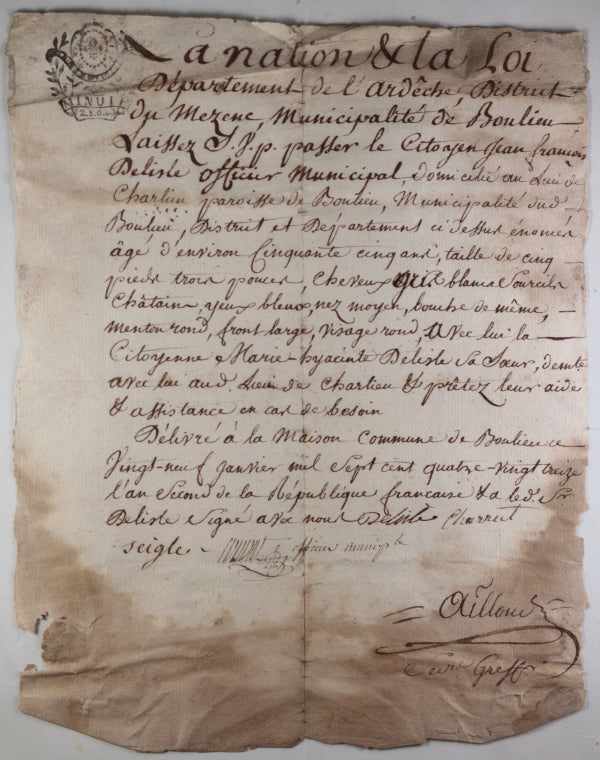 MINUTE
2. S. 6. D.
La nation & la Loi
Département de l'ardêche, District
du Mezenc, Municipalité de Boulieu
Laissez passer le Citoyen Jean françois
Delisle officier Municipal, domicilié au Lieu de
Charlieu paroisse de Boulieu, Municipalité dud.
Boulieu, District et Département ci dessus énoncés
âgé d'environ Cinquante cinq ans, taille de cinq
pieds trois pouces, Cheveux gris blancs Sourcils
Châtains, yeux bleux, nez moyen, bouche de même,
menton rond, front large, visage rond, Avec lui la
Citoyenne Marie-hyacinte Delisle Sa Sœur, demte
avec lui aud. Lieu de Charlieu & prêtez leur aide
& assistance en cas de besoin
Délivré à la Maison Commune de Boulieu ce
Vingt-neuf Janvier mil Sept cent quatre-vingt treize
l'an Second de la République francaise & a led. Sr
Delisle Signé avec nous Delisle
Seigle officier
Greffr